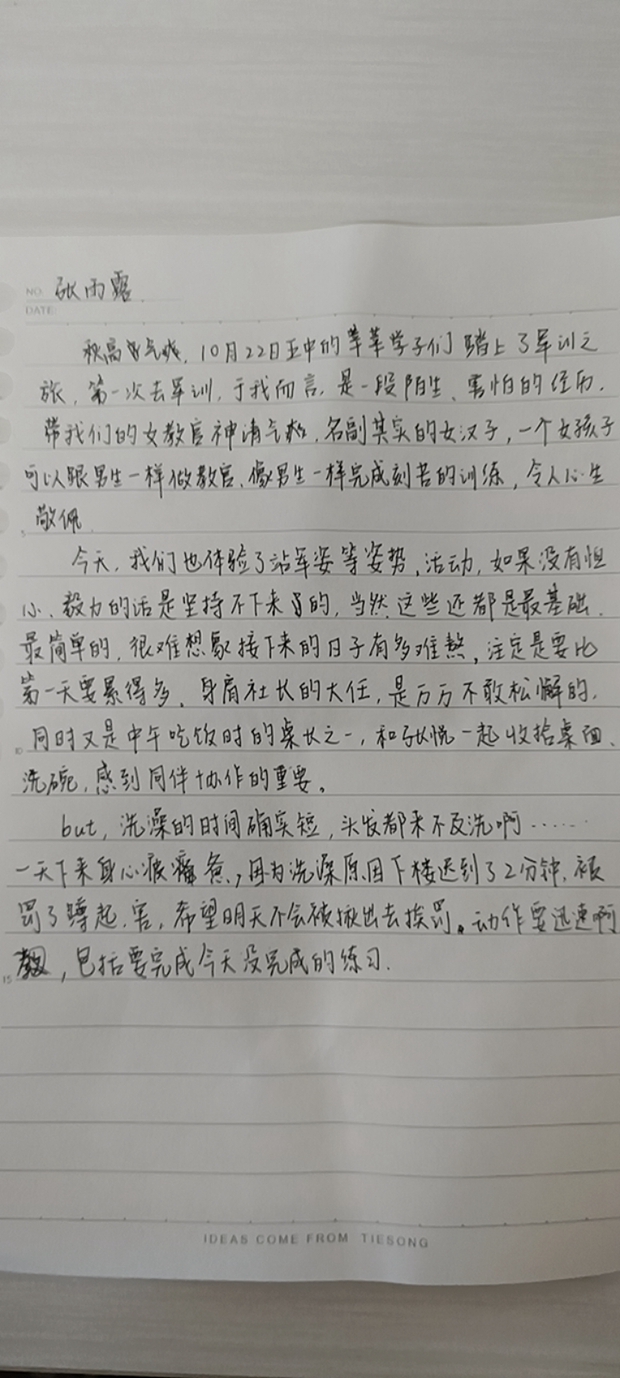 NO. 张雨露
DATE
秋高气爽，10月22日正中的莘莘学子们踏上了军训之
旅，第一次去军训，于我而言，是一段陌生、害怕的经历，
带我们的女教官神清气爽，名副其实的女汉子，一个女孩子
可以跟男生一样做教官、像男生一样完成刻苦的训练，令人心生
5
敬佩
今天，我们也体验了站军姿等姿势、活动，如果没有恒
心、毅力的话是坚持不下来的，当然，这些还都是最基础、
最简单的，很难想象接下来的日子有多难熬，注定是要比
第一天要累得多、身肩社长的大任，是万万不敢松懈的，
10 同时又是中午吃饭时的桌长之一，和张悦一起收拾桌面、
洗碗，感到同伴协作的重要。
but，洗澡的时间确实短，头发都来不及洗啊……
一天下来身心疲惫，因为洗澡原因下楼迟到了2分钟，被
罚了蹲起，害，希望明天不会被揪出去挨罚。动作要迅速啊
15 ，包括要完成今天没完成的练习.
IDEAS COME FROM TIESONG